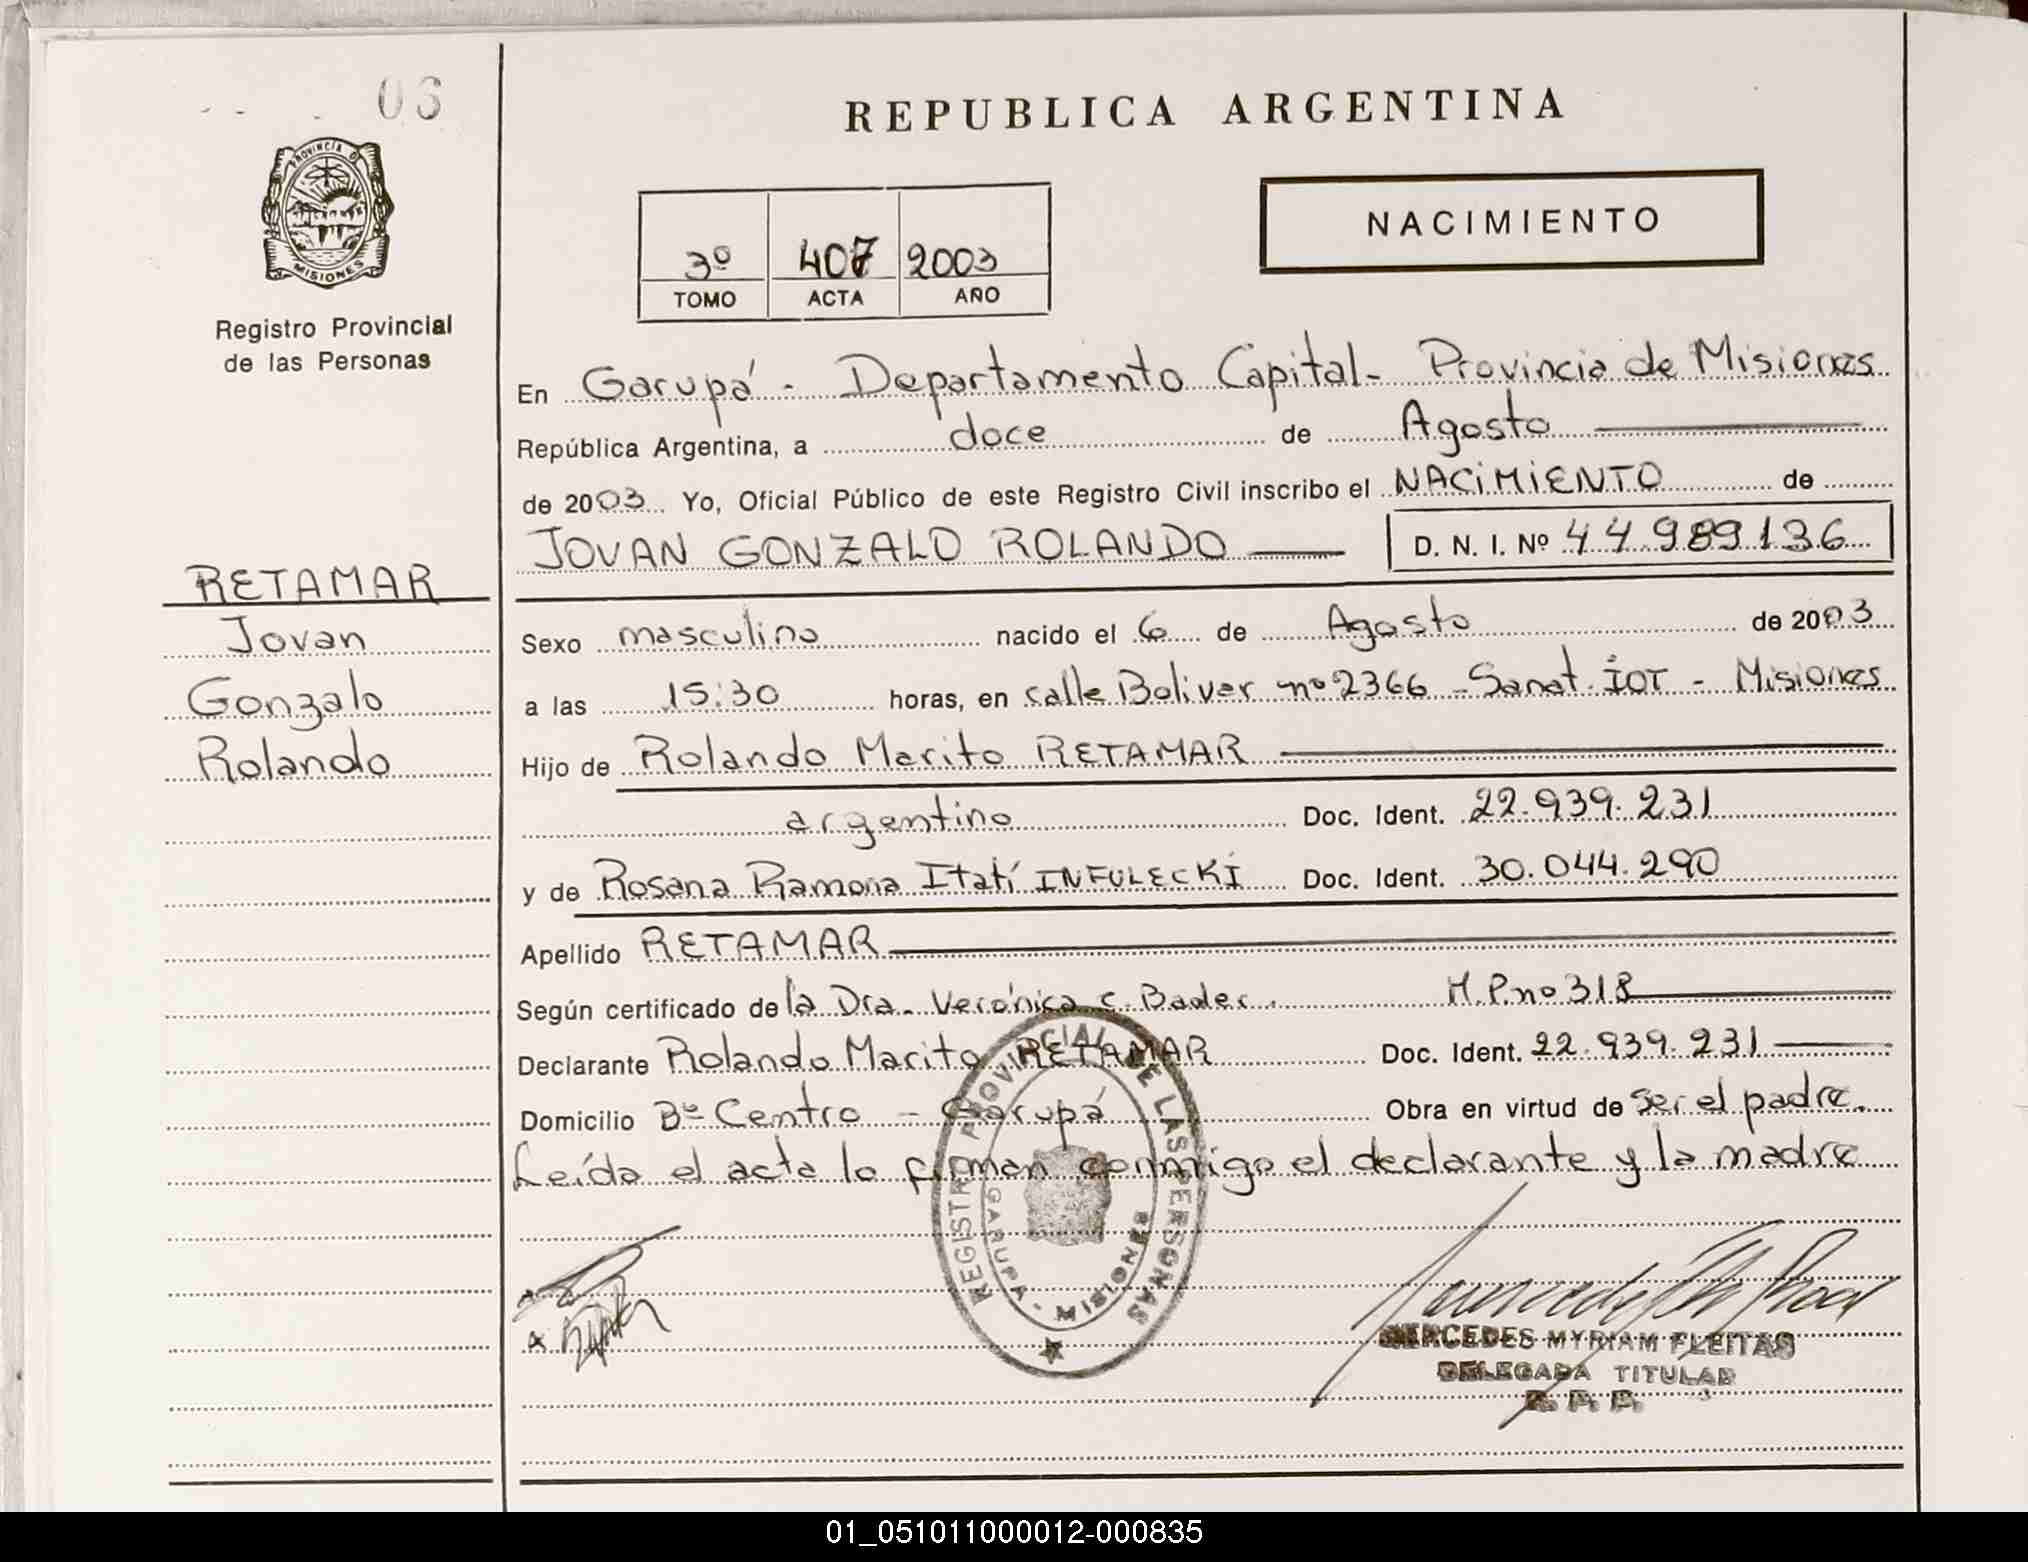 06
PROVINCIA D
MISIONES
Registro Provincial
de las Personas
REPUBLICA ARGENTINA
NACIMIENTO
3º 407 2003
TOMO ACTA AÑO
En Garupá - Departamento Capital - Provincia de Misiones
República Argentina, a doce de Agosto
de 2003 Yo, Oficial Público de este Registro Civil inscribo el NACIMIENTO de
JOVAN GONZALO ROLANDO D. N. I. Nº 44.989.136
RETAMAR
Jovan
Gonzalo
Rolando
Sexo masculino nacido el 6 de Agosto de 2003
a las 15:30 horas, en calle Bolivar nº 2366 - Sanat. IOT - Misiones
Hijo de Rolando Marito RETAMAR
argentino Doc. Ident. 22.939.231
y de Rosana Ramona Itatí INFULECKI Doc. Ident. 30.044.290
Apellido RETAMAR
Según certificado de la Dra. Verónica C. Bader. M.P. nº 318
Declarante Rolando Marito RETAMAR Doc. Ident. 22.939.231
Domicilio Bº Centro - Garupá Obra en virtud de ser el padre.
Leída el acta la firman conmigo el declarante y la madre
REGISTRO PROVINCIAL DE LAS PERSONAS
GARUPA - MISIONES
MERCEDES MYRIAM FLEITAS
DELEGADA TITULAR
R. P. P.
01_051011000012-000835